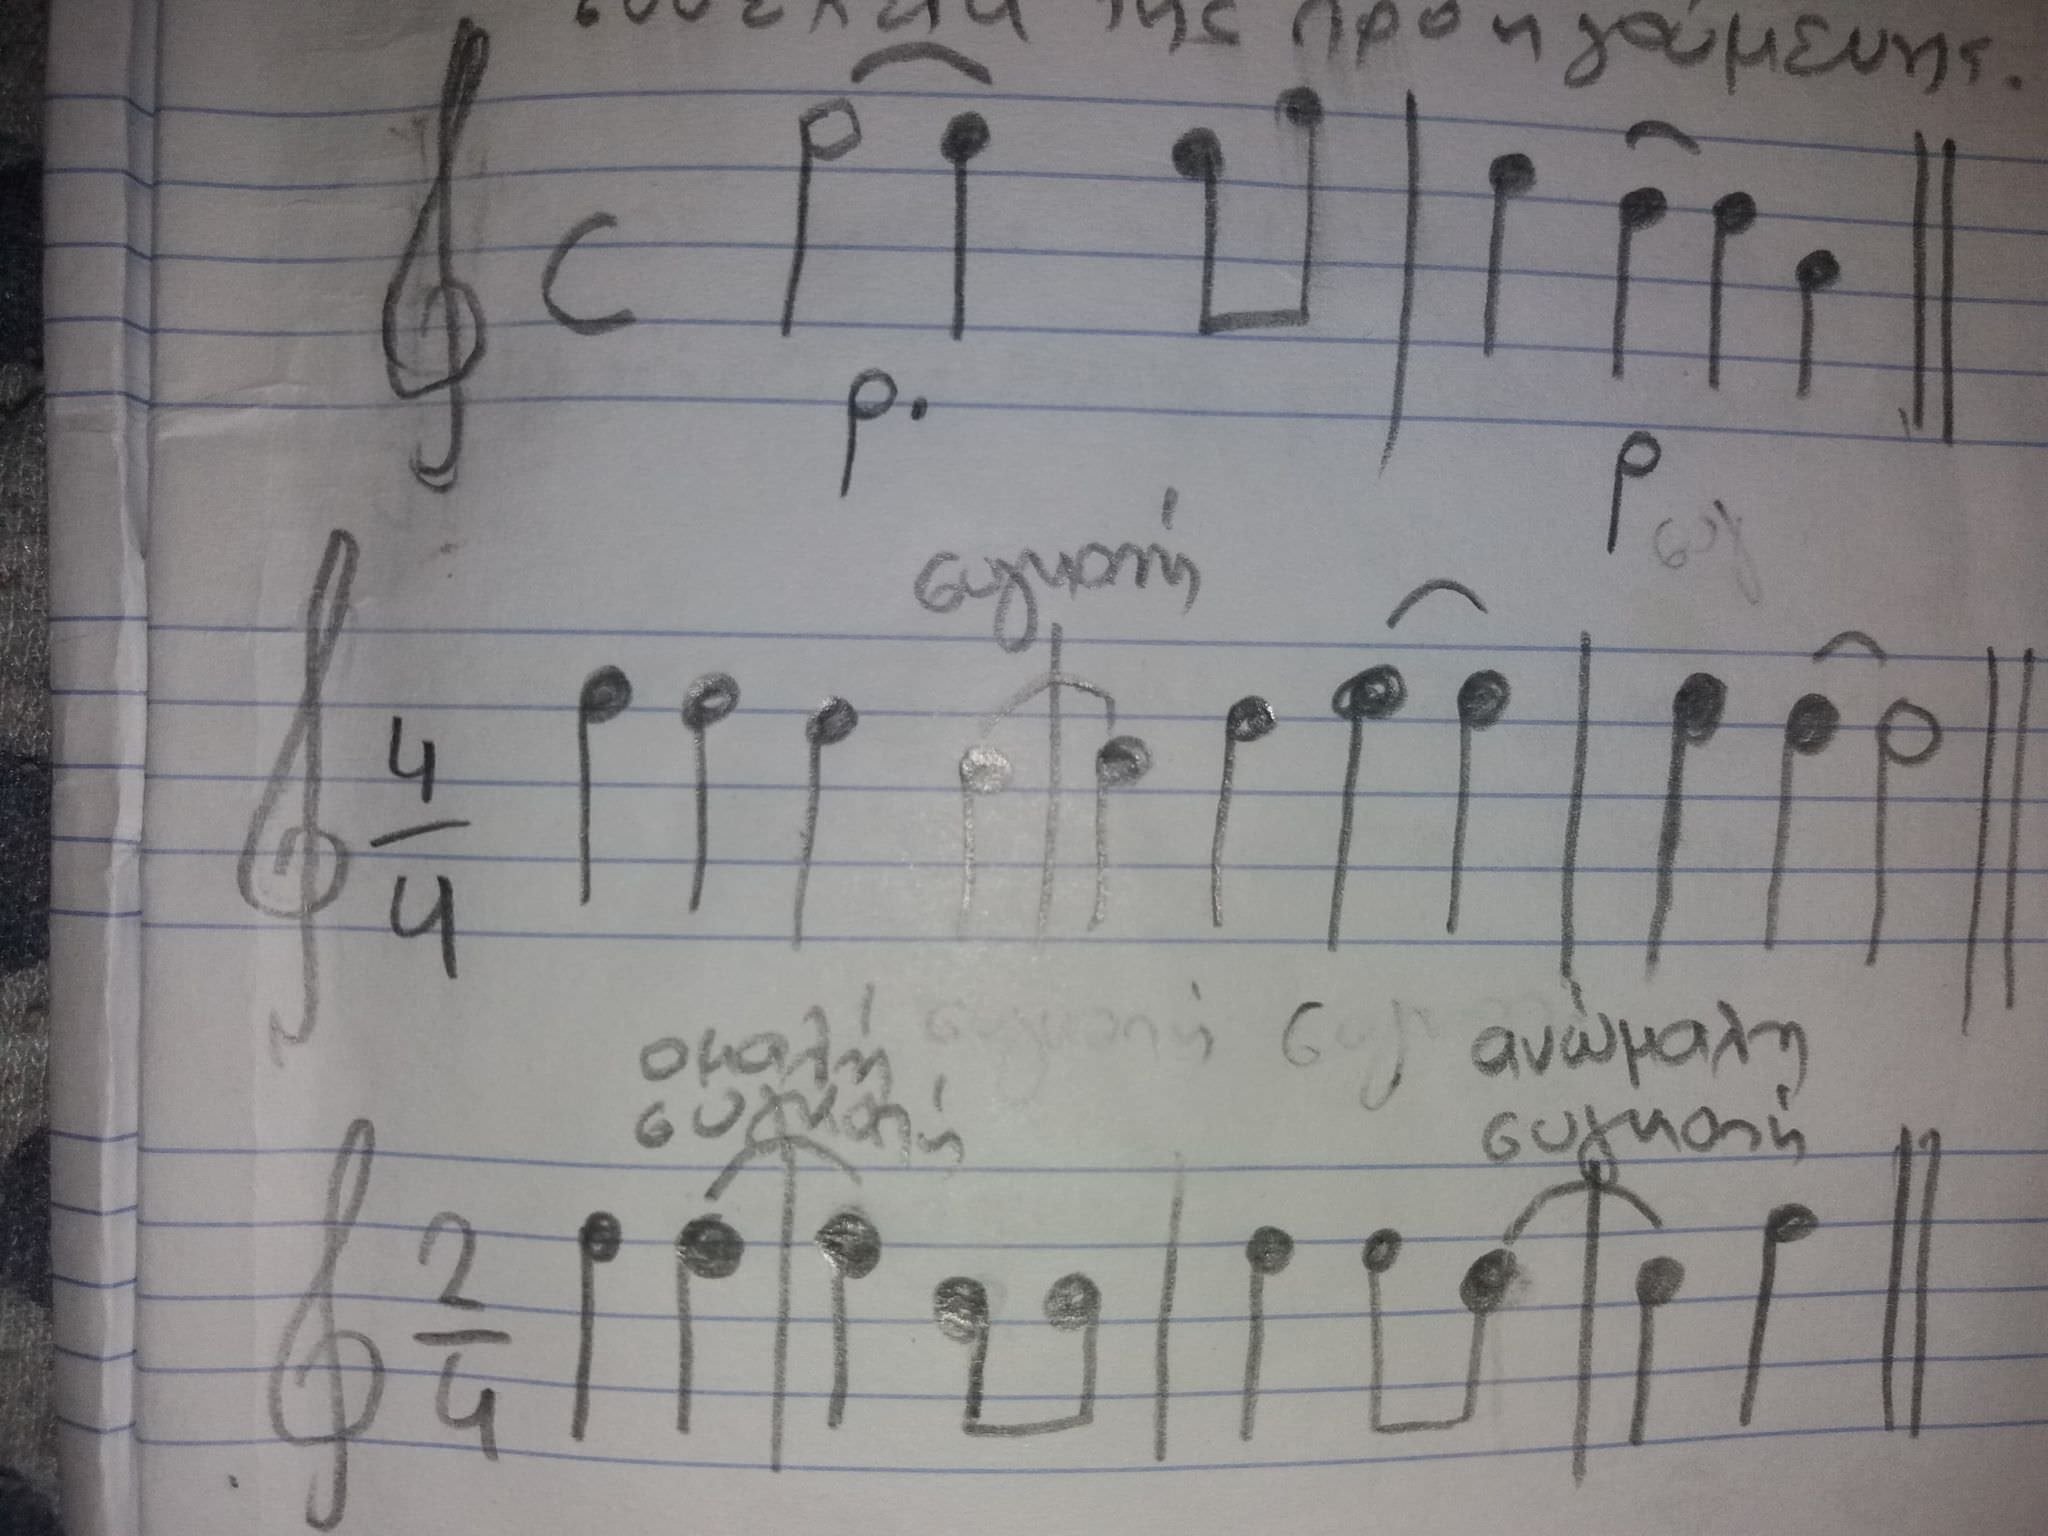 συνέχεια της προηγούμενης.
C
συγ
συγκοπή
4
4
ομαλή
συγκοπή
συγκοπή
ανώμαλη
συγκοπή
2
4